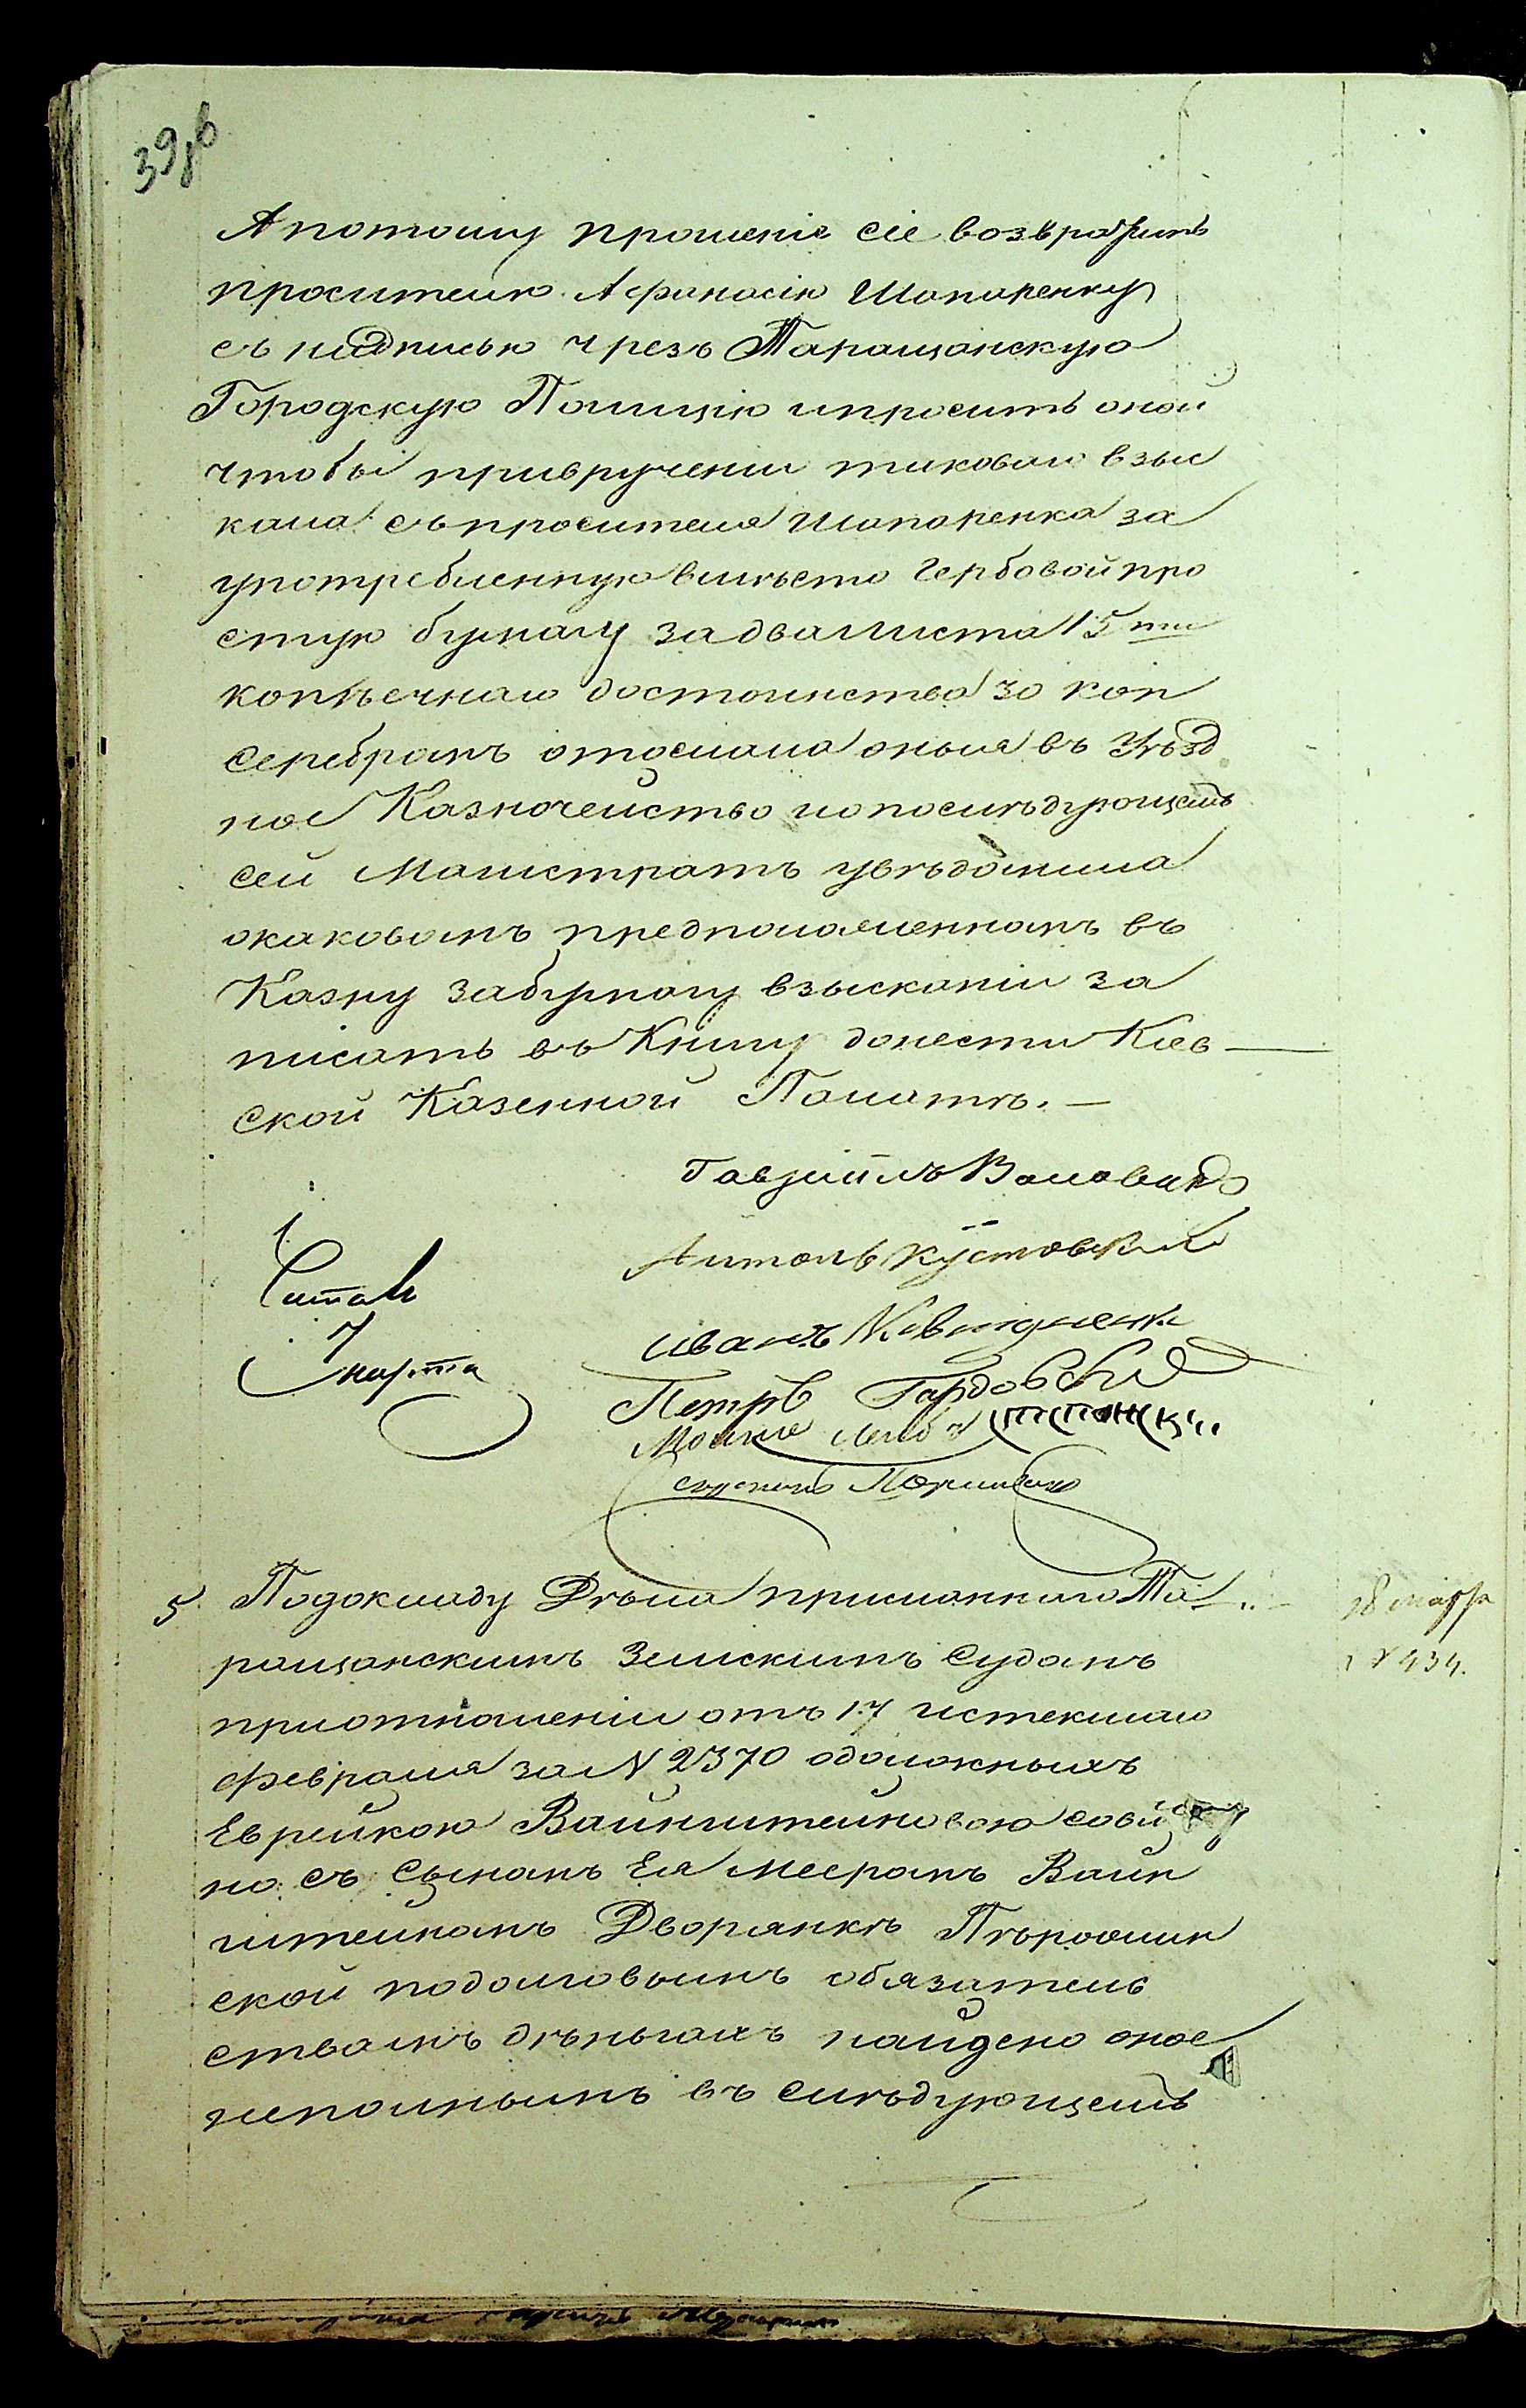 39об
А потому прошеніе сіе возвратить
просителю Афанасію Шапаренку
съ надписью чрезъ Таращанскую
Городскую Полицію и просить оной
чтобы привручении таковаго взыс
кала съ просителя Шапаренка за
употребленную вмѣсто Гербовой про
стую бумагу за два листа 15ти
копѣечнаго достоинства 30 коп
Серебромъ отослала оныя въ Уѣзд
ное Казначейство и о послѣдующемъ
сей Магистратъ увѣдомила
о каковомъ предполагаемомъ въ
Казну за бумагу взысканіи за
писать въ Книгу донести Кіев
ской Казенной Палатѣ. —
Гавріилъ
Антонъ Кустовскій
Иванъ
Петръ Гардовскій
Читалъ
7
марта
5. По докладу Дѣла присланнаго Та
ращанскимъ Земскимъ Судомъ
приотношеніи отъ 17 истекшаго
февраля за N 2370 одолжныхъ
Еврейкою Вайнштейновою совмѣст
но съ Сыномъ Ея Мееромъ Вайн
штейномъ Дворянкѣ
ской подолговымъ обязатель
ствамъ деньгахъ найдено оное
неполнымъ въ слѣдующемъ
18 марта
N 434.